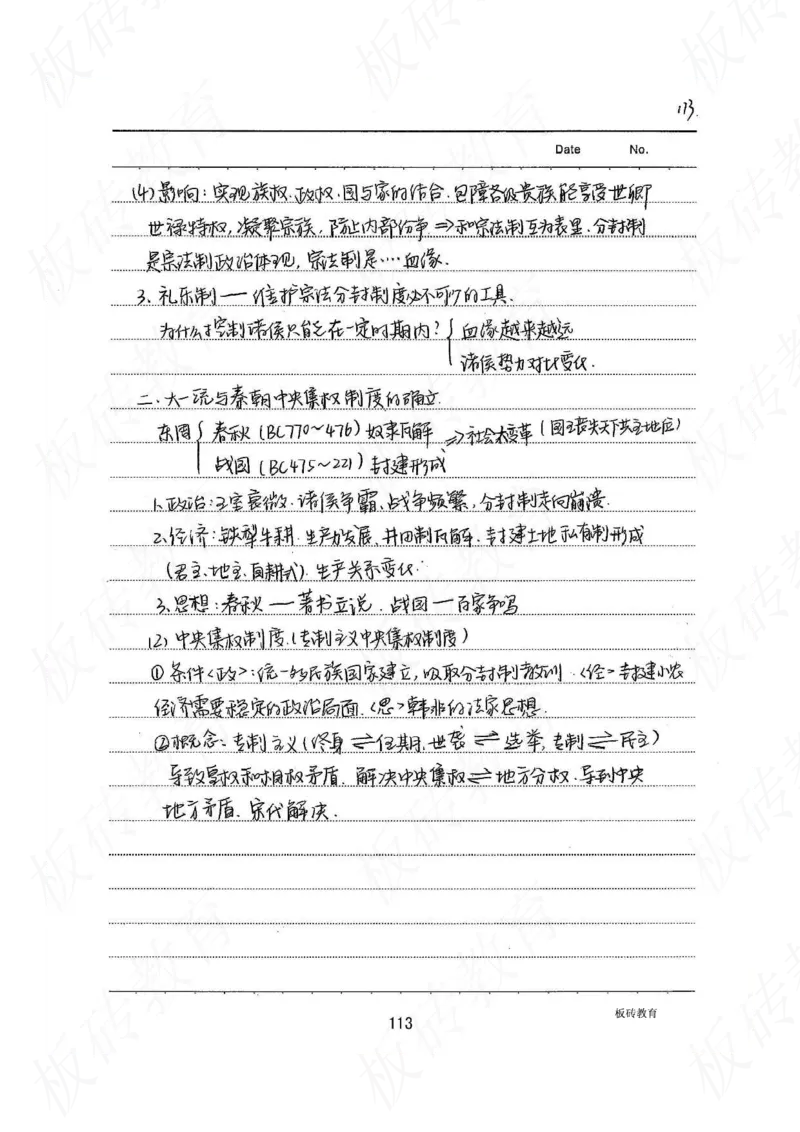 113.
Date No.
(4)影响：实现族权、政权、国与家的结合.包障各级贵族能享受世卿
世禄特权,凝聚宗族,防止内部纷争⇒和宗法制互为表里.分封制
是宗法制政治体现,宗法制是…血缘.
3.礼乐制——维护宗法分封制度必不可少的工具.
为什么才控制诸侯只能在一定时期内?{血缘越来越远
诸侯势力对比变化.
二、大一统与秦朝中央集权制度的确立.
东周{春秋(BC770~476)奴隶瓦解 ⇒社会大变革(国王丧失天下共主地位)
战国(BC475~221)封建形成
1.政治:王室衰微.诸侯争霸,战争频繁,分封制走向崩溃.
2.经济:铁犁牛耕.生产力发展、井田制瓦解.封建土地私有制形成
(君主、地主、自耕式).生产关系变化.
3.思想:春秋——著书立说.战国——百家争鸣
(2)中央集权制度.(专制主义中央集权制度)
①条件<政>:统一的民族国家建立,吸取分封制教训.<经>封建小农
经济需要稳定的政治局面.<思>韩非的法家思想.
②概念:专制主义(终身⇌任期.世袭⇌选举,专制⇌民主)
导致皇权和相权矛盾.解决中央集权⇌地方分权.导到中央
地方矛盾.宋代解决.
113
板砖教育